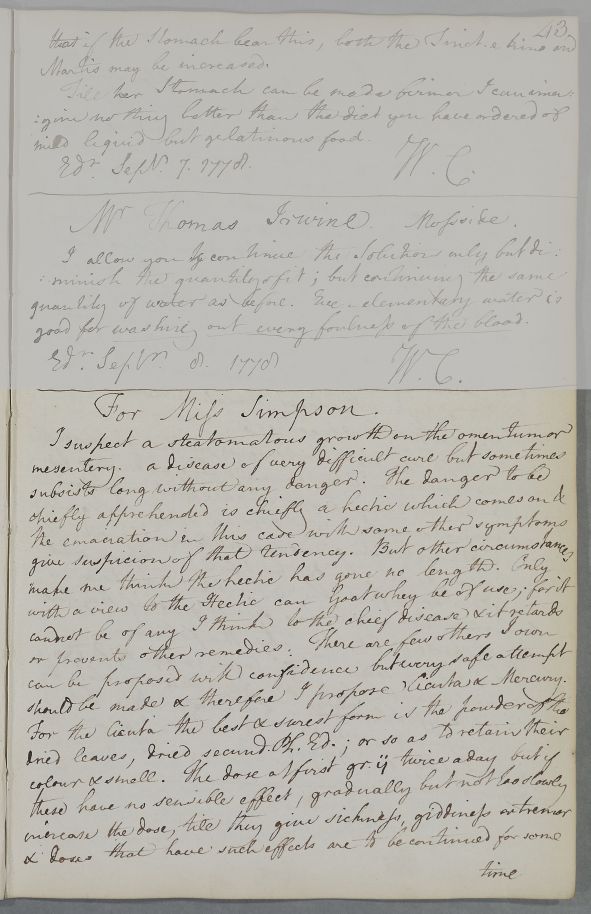 43
that if the Stomach bear this, both the Tinct. e kino and
Martis may be increased.
Till her Stomach can be made firmer I can ima:
:gine nothing better than the diet you have ordered of
mild liquid but gelatinous food.
Edr. Septr. 7. 1778.
W. C.
Mr Thomas Irwine. Mosside.
I allow you to continue the Solution only but di:
:minish the quantity of it; but continuing the same
quantity of water as before. elementary water is
good for washing out every foulness of the blood.
Edr. Septr. 8. 1778
W. C.
For Miss Simpson.
I suspect a steatomatous growth on the omentum or
mesentery. a disease of very difficult cure but sometimes
subsists long without any danger. The danger to be
chiefly apprehended is chiefly a hectic which comes on &
the emaciation in this case with some other symptoms
give suspicion of that tendency. But other circumstances
make me think the hectic has gone no length. Only
with a view to the Hectic can Goat whey be of use; for it
cannot be of any I think to the chief disease & it retards
or prevents other remedies. There are few others I own
can be proposed with confidence but very safe attempt
should be made & therefore I propose Cicuta & Mercury.
For the Cicuta the best & surest form is the powder of the
dried leaves, dried secund. Ph. Ed.; or so as to retain their
colour & smell. The dose at first gr. ij twice a day but if
these have no sensible effect, gradually but not too slowly
increase the dose, till they give sickness, giddiness or tremor
& doses that have such effects are to be continued for some
time